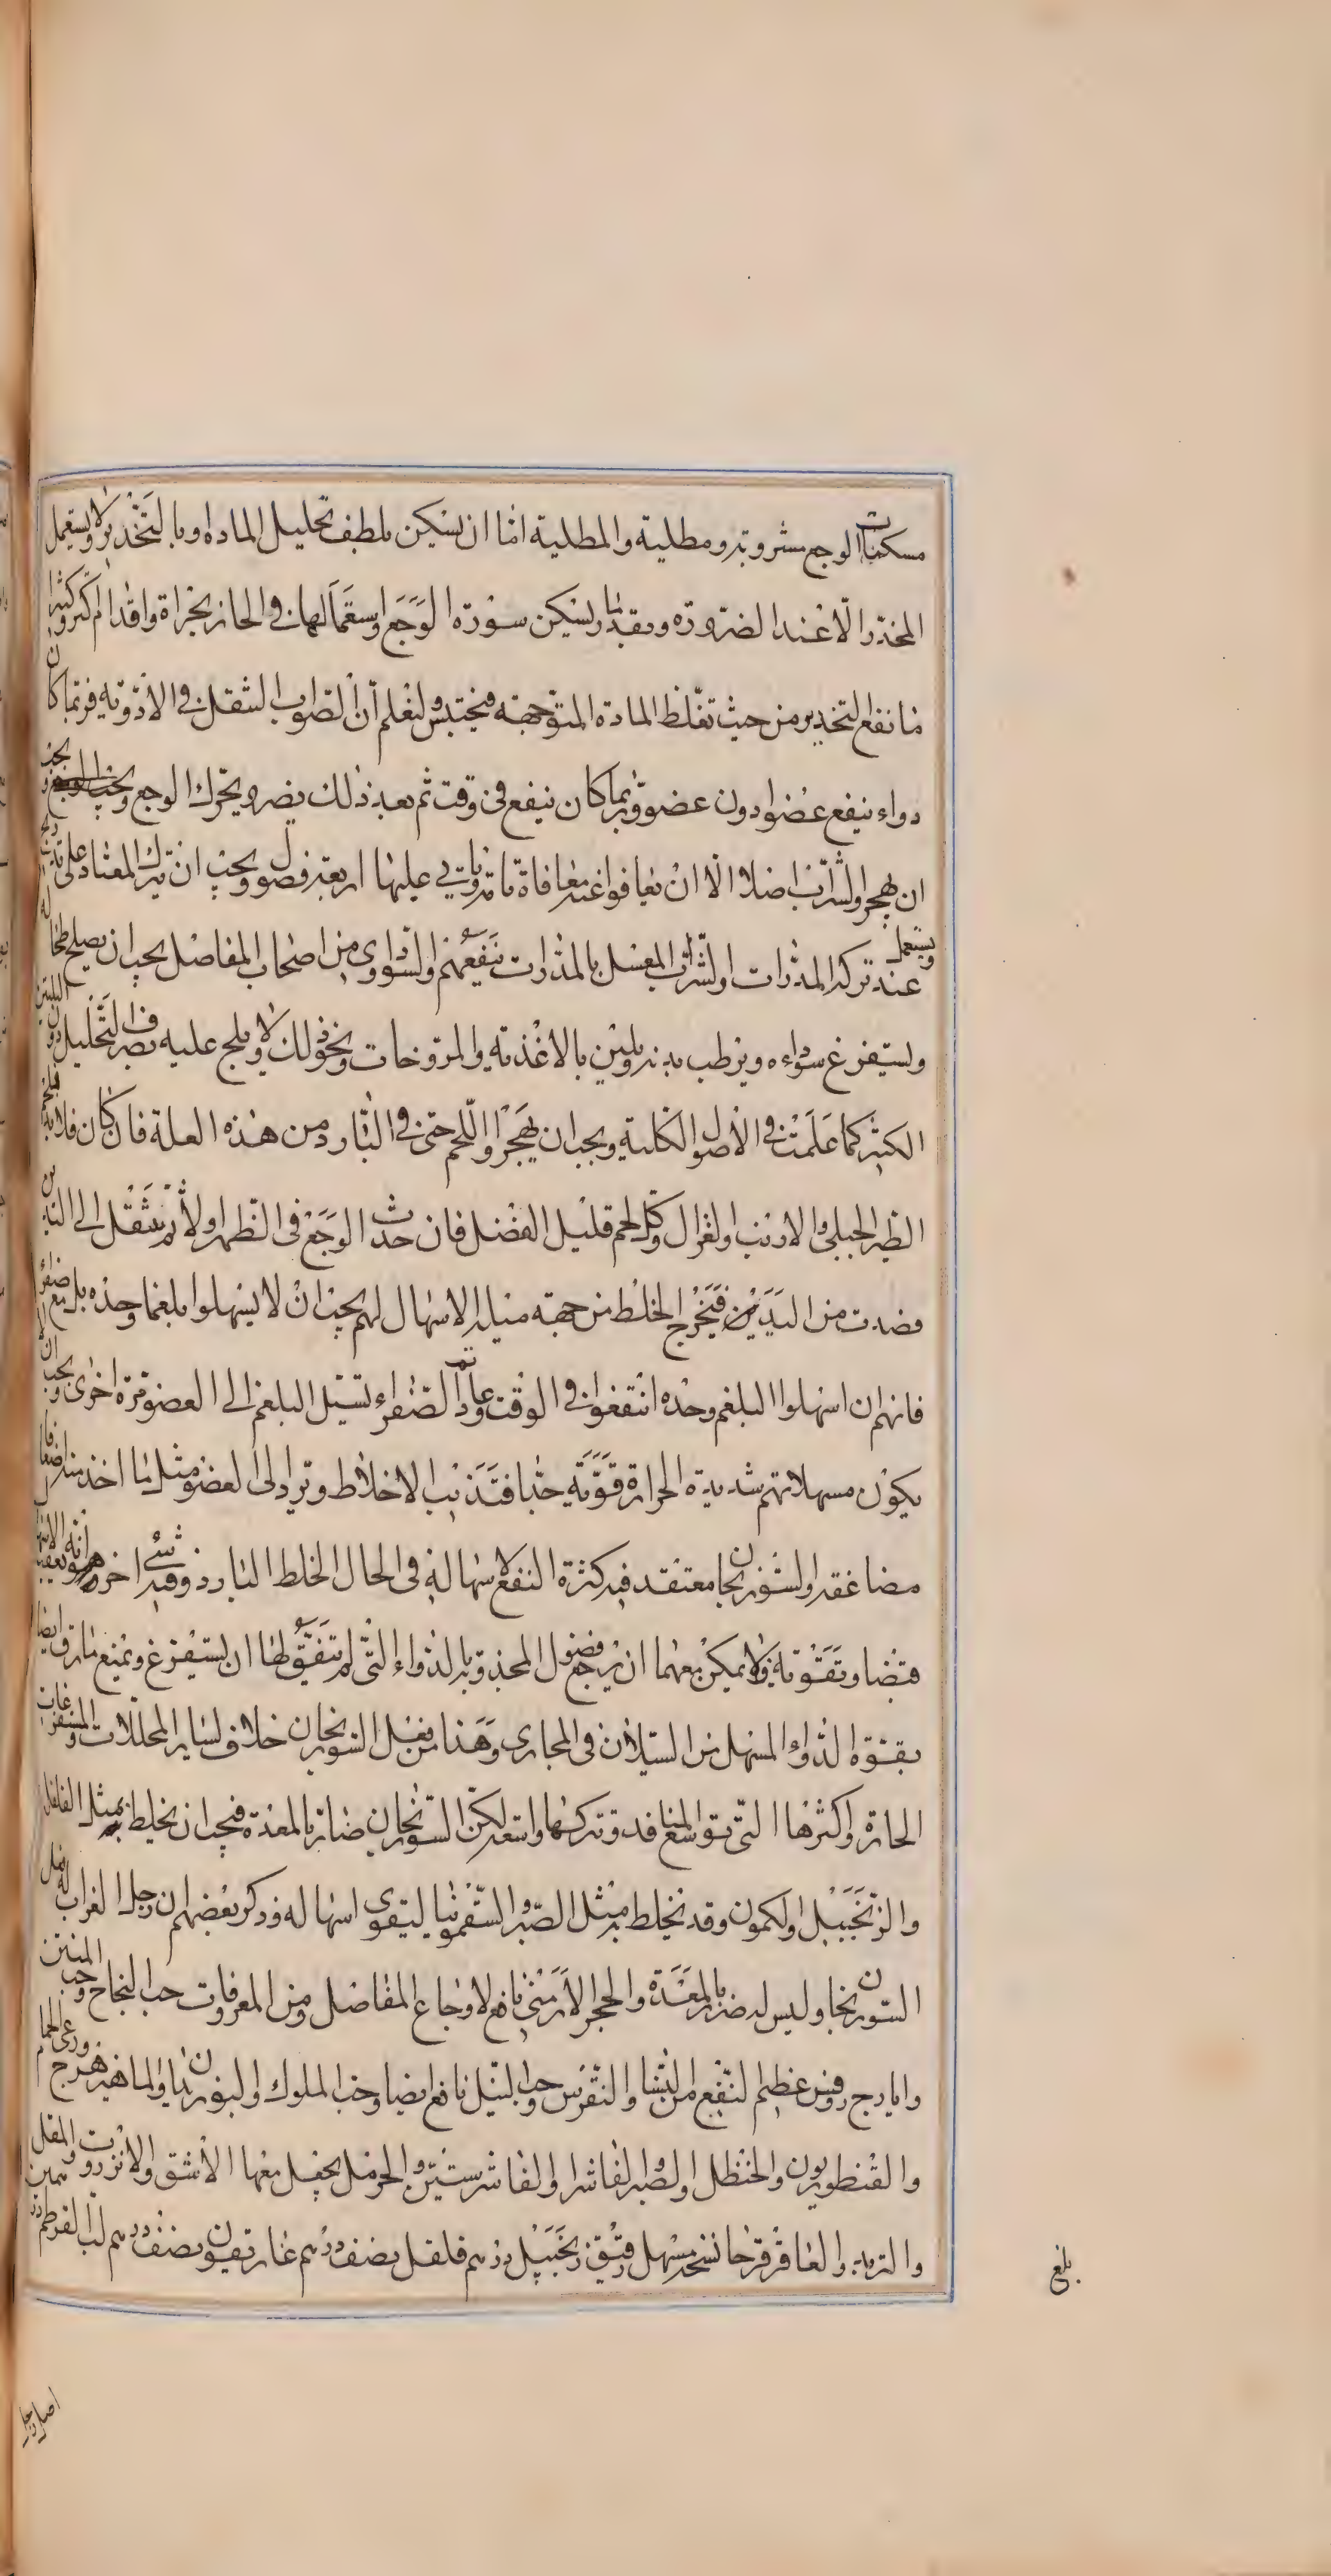 مسكنات الوجع مشروبة ومطلية والمطلية اما ان يسكن بلطف تحليل المادة او بالتخدير ولا يستعمل
المخدرات الا عند الضرورة وبقدر ما يسكن سورة الوجع واستعمالها في الحار بجراة واقدام اكثر وكثيرا
ما نفع التخدير من حيث تغلظ المادة المتوجهة فيحتبس ولتعلم ان الصواب التنقل في الادوية فربما كان
دواء ينفع عضوا دون عضو وربما كان ينفع في وقت ثم بعد ذلك يضر ويحرك الوجع ويجب
ان يهجروا الشراب اصلا الا ان يعافوا عنه معافاة تامة وياتي عليها اربعة فصول ويجب ان يترك المعتاد على تدريج
ويستعمل عند تركه المدرات والشراب المعسل بالمدرات ينفعهم والسوداوي من اصحاب المفاصل يجب ان يصلح طحاله
ويستفرغ سوداءه ويرطب بدنه ويلين بالاغذية والمروخات ونحو ذلك ولا يلح عليه بصرف التحليل دون التليين
الكثير كما علمت في الاصول الكلية ويجب ان يهجروا اللحم حتى في البارد من هذه العلة فان كان فلا بد فلحم
الطير الجبلي والارنب والغزال وكل لحم قليل الفضل فان حدث الوجع في الظهر اولا ثم ينتقل الى اليدين
فصدت من اليدين فيخرج الخلط من جهة ميله الاسهال لهم يجب ان لا يسهلوا بلغما وحده بل مع صفراء
فانهم ان اسهلوا البلغم وحده انتفعوا في الوقت وعادت الصفراء تسيل البلغم الى العضو مرة اخرى ويجب ان لا
يكون مسهلاتهم شديدة الحرارة قوية جدا فتذيب الاخلاط وترد الى العضو مثل ما اخذ منه اضعافا
مضاعفة والسورنجان معتقد فيه كثرة النفع لاسهاله في الحال الخلط البارد وفيه شيء اخر وهو انه يعقب الاسهال
قبضا وتقوية فلا يمكن معهما ان يرجع فضول المجذوبة بالدواء التي لم تتفق لها ان يستفرغ ويمنع ما رق ايضا
بقوة الدواء المسهل من السيلان في المجاري وهذا من فعل السورنجان خلاف لساير المحللات والمستفرغات
الحارة واكثرها التي توسع المنافد وتتركها واسعة لكن السورنجان ضار بالمعدة فيجب ان يخلط بمثل الفلفل
والزنجبيل والكمون وقد يخلط به مثل الصبر والسقمونيا ليتقوى اسهاله وذكر بعضهم ان رجل الغراب له فعل
السورنجان وليس له ضرر بالمعدة والحجر الارمني نافع لاوجاع المفاصل ومن المعروفات حب النجاح وحب المنتن
وايارج روفس عظيم النفع من النسا والنقرس وحب النيل نافع ايضا وحب الملوك والبوزيدان والماهيزهرج ورعي الحمام
والقنطوريون والحنظل والصبر والفاشرا والفاشرستين والحرمل يجعل معها الاشق والانزروت والمقل
والتربد والعاقرقرحا نسخة مسهل رقيق زنجبيل درهم فلفل نصف درهم غاريقون نصف درهم لب القرطم
بلغ